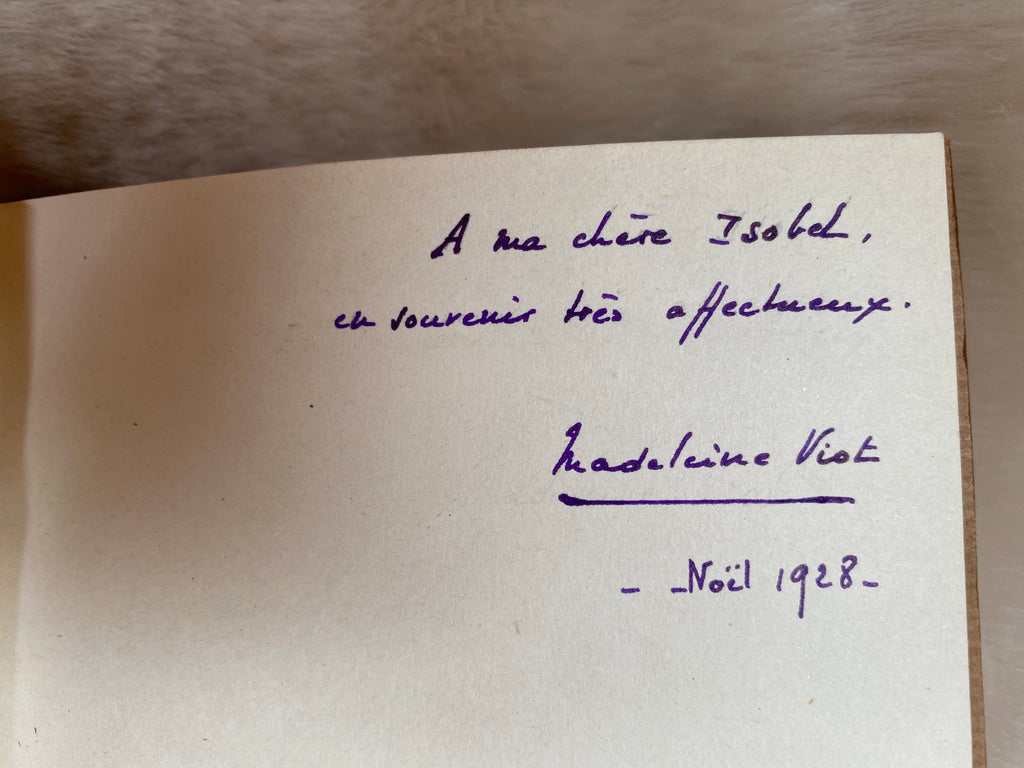 A ma chère Isobel,
en souvenir très affectueux.
Madeleine Viot
- -Noël 1928-